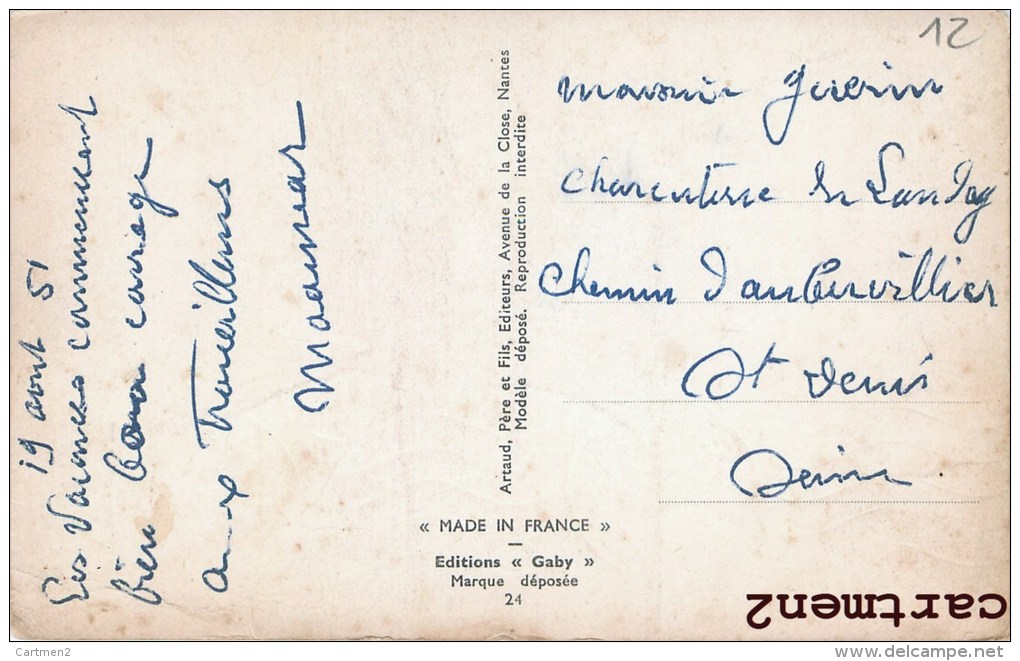 12
19 aout 51
Les Vacances commencent
bien bon courage
aux Travailleurs
Artaud, Père et Fils, Editeurs, Avenue de la Close, Nantes
Modèle déposé. Reproduction interdite
« MADE IN FRANCE »
Editions « Gaby »
Marque déposée
24
Guerin
Charenterie
Chemin d'aubervillier
St Denis
Seine
cartmen2
Cartmen2
www.delcampe.net